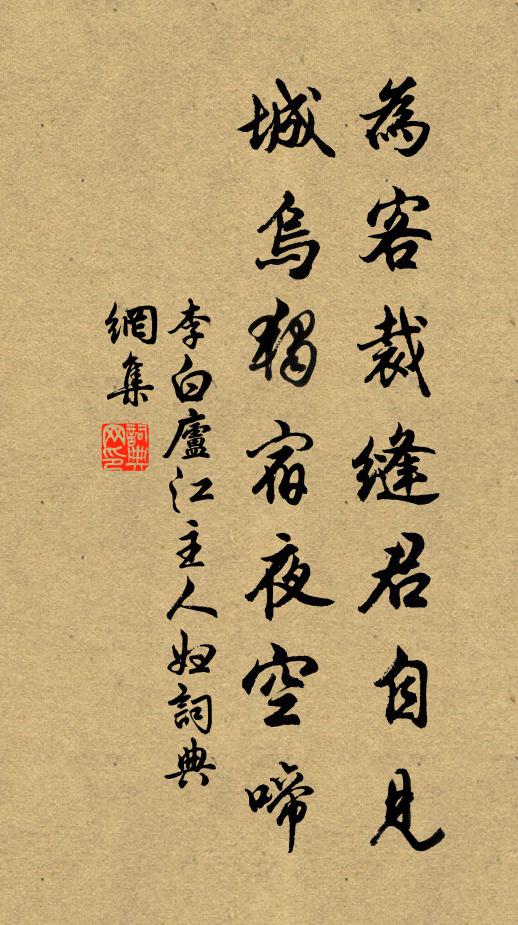 為客裁縫君自見
城烏獨宿夜空啼
李白廬江主人妇詞典
網集
詞典網印